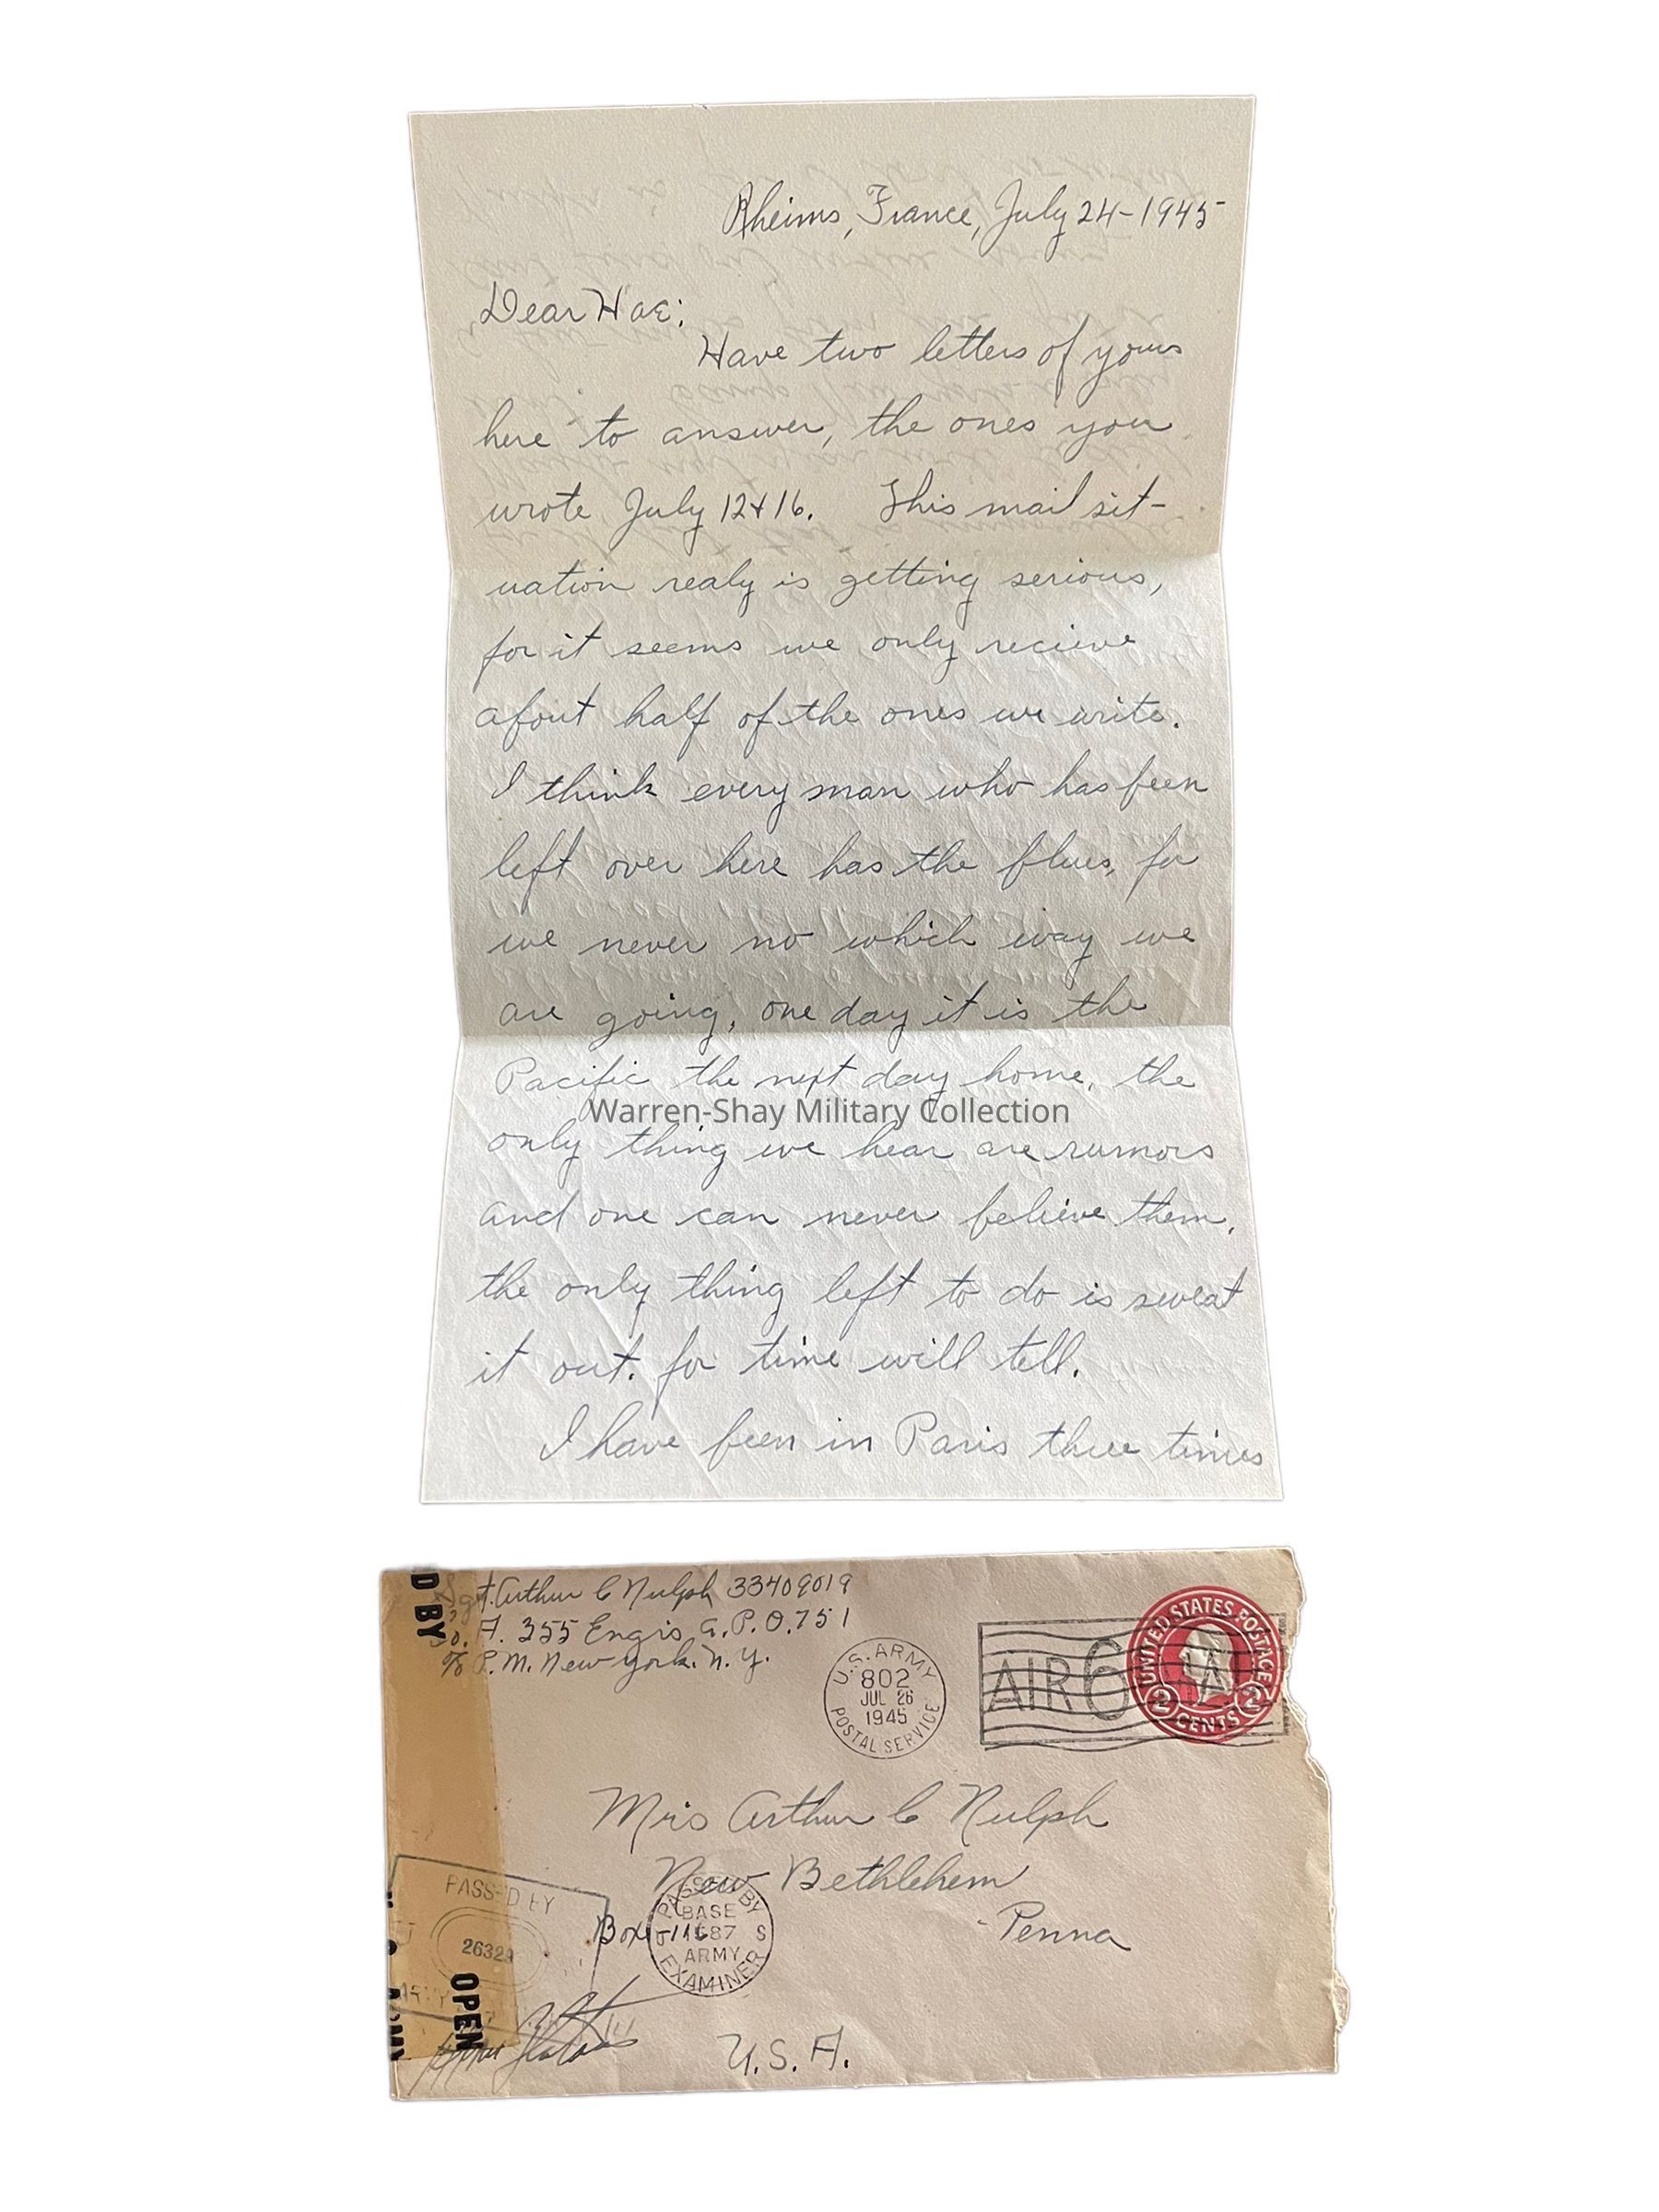 Rheims, France, July 24-1945
Dear Hae:
Have two letters of yours
here to answer, the ones you
wrote July 12 & 16. This mail sit-
uation realy is getting serious,
for it seems we only recieve
about half of the ones we write.
I think every man who has been
left over here has the blues, for
we never no which way we
are going, one day it is the
Pacific the next day home, the
Warren-Shay Military Collection
only thing we hear are rumors
and one can never believe them,
the only thing left to do is sweat
it out. for time will tell.
I have been in Paris three times
D BY
Sgt. Arthur C Nulph 33409019
Co. A. 355 Engrs A.P.O. 751
c/o P.M. New York. N.Y.
U.S. ARMY
802
JUL 26
1945
POSTAL SERVICE
AIR 6
UNITED STATES POSTAGE
2 CENTS 2
Mrs Arthur C Nulph
New Bethlehem
Box
Penna
PASSED BY
BASE
ARMY
EXAMINER
PASSED BY
ARMY
OPEN
U.S.A.